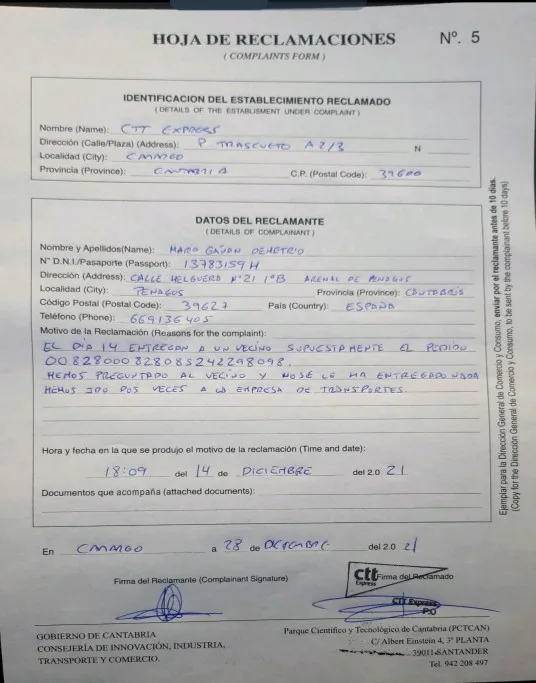 HOJA DE RECLAMACIONES Nº. 5
( COMPLAINTS FORM )
IDENTIFICACION DEL ESTABLECIMIENTO RECLAMADO
( DETAILS OF THE ESTABLISMENT UNDER COMPLAINT )
Nombre (Name): CTT EXPRESS
Dirección (Calle/Plaza) (Address): P TRASCUETO A2/3 N
Localidad (City): CAMARGO
Provincia (Province): CANTABRIA C.P. (Postal Code): 39600
DATOS DEL RECLAMANTE
( DETAILS OF COMPLAINANT )
Nombre y Apellidos(Name): DEMETRIO
Nº D.N.I./Pasaporte (Passport): 13783159H
Dirección (Address): CALLE HELGUERO Nº21 1ºB ARENAL DE PENAGOS
Localidad (City): PENAGOS Provincia (Province): CANTABRIA
Código Postal (Postal Code): 39627 País (Country): ESPAÑA
Teléfono (Phone): 669136405
Motivo de la Reclamación (Reasons for the complaint):
EL DIA 14 ENTREGAN A UN VECINO SUPUESTAMENTE EL PEDIDO
00828000828085242298098.
HEMOS PREGUNTADO AL VECINO Y NO SE LE HA ENTREGADO NADA
HEMOS IDO DOS VECES A LA EMPRESA DE TRANSPORTES.
Hora y fecha en la que se produjo el motivo de la reclamación (Time and date):
18:09 del 14 de DICIEMBRE del 2.0 21
Documentos que acompaña (attached documents):
En CAMARGO a 28 de DICIEMBRE del 2.0 21
Firma del Reclamante (Complainant Signature)
ctt Firma del Reclamado
Express
CTT Express
P.O
GOBIERNO DE CANTABRIA
CONSEJERÍA DE INNOVACIÓN, INDUSTRIA,
TRANSPORTE Y COMERCIO.
Parque Científico y Tecnológico de Cantabria (PCTCAN)
C/ Albert Einstein 4, 3ª PLANTA
39011-SANTANDER
Tel. 942 208 497
Ejemplar para la Dirección General de Comercio y Consumo, enviar por el reclamante antes de 10 días.
(Copy for the Dirección General de Comercio y Consumo, to be sent by the complainant before 10 days)